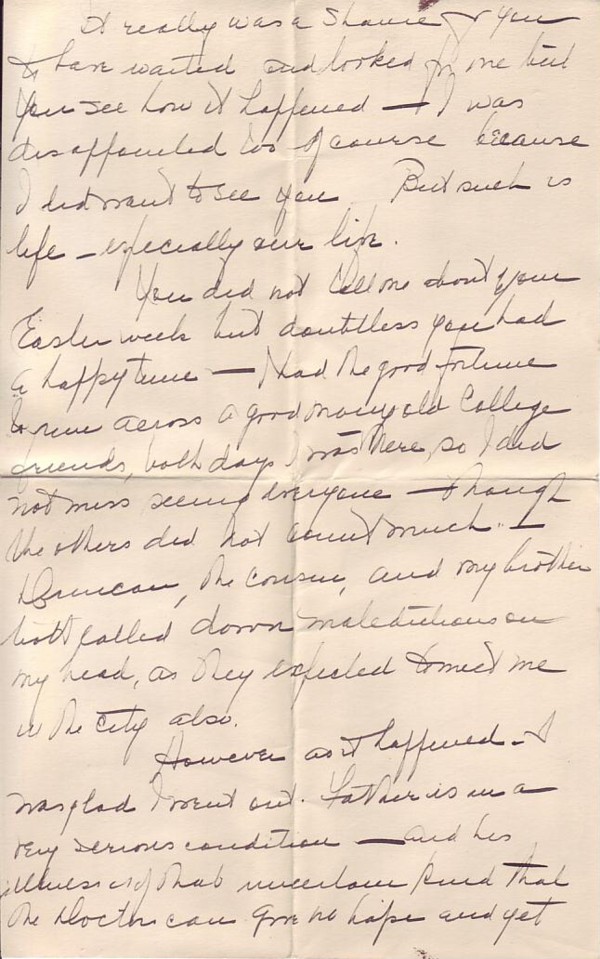 It really was a shame for you
to have waited and looked for me but
you see how it happened — I was
disappointed too of course because
I did want to see you. But such is
life — especially our life.
You did not tell me about your
Easter week but doubtless you had
a happy time — I had the good fortune
to run across a good many old College
friends, both days I was there, so I did
not miss seeing everyone — though
the others did not count much. —
Duncan, the cousin, and my brother
both called down maledictions on
my head, as they expected to meet me
in the city also.
However as it happened — I
was glad I went out. Father is in a
very serious condition — and his
illness is of that uncertain kind that
the Doctor can give no hope and yet